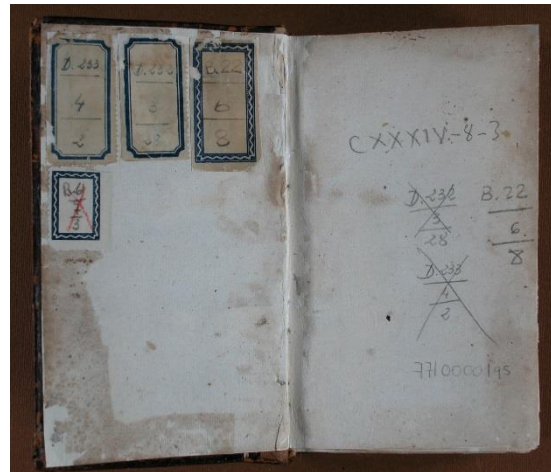 D.233
4
2
D.232
3
28
B.22
6
8
B.4
3
CXXXIV-8-3
D.232
3
28
B.22
6.
8
D.233
4
2
7710000195